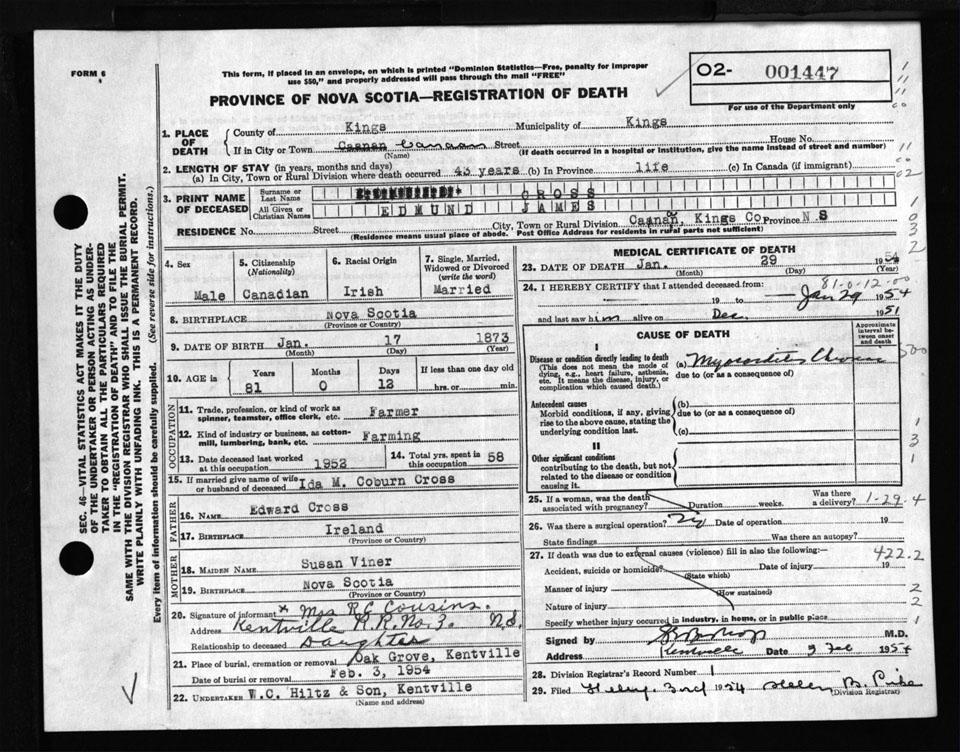 FORM 6
This form, if placed in an envelope, on which is printed "Dominion Statistics—Free, penalty for improper
use $50," and properly addressed will pass through the mail "FREE"
O2- 001447
For use of the Department only
PROVINCE OF NOVA SCOTIA—REGISTRATION OF DEATH
SEC. 46—VITAL STATISTICS ACT MAKES IT THE DUTY
OF THE UNDERTAKER OR PERSON ACTING AS UNDER-
TAKER TO OBTAIN ALL THE PARTICULARS REQUIRED
IN THE "REGISTRATION OF DEATH" AND TO FILE THE
SAME WITH THE DIVISION REGISTRAR WHO SHALL ISSUE THE BURIAL PERMIT.
WRITE PLAINLY WITH UNFADING INK. THIS IS A PERMANENT RECORD.
Every item of information should be carefully supplied. (See reverse side for instructions.)
1. PLACE OF DEATH
County of Kings Municipality of Kings
If in City or Town Caanan Canaan Street House No.
(Name) (If death occurred in a hospital or institution, give the name instead of street and number)
2. LENGTH OF STAY (in years, months and days)
(a) In City, Town or Rural Division where death occurred 43 years (b) In Province life (c) In Canada (if immigrant)
3. PRINT NAME OF DECEASED
Surname or Last Name CROSS
All Given or Christian Names EDMUND JAMES
RESIDENCE No. Street City, Town or Rural Division Caanan, Kings Co Province N S
(Residence means usual place of abode. Post Office Address for residents in rural parts not sufficient)
4. Sex Male
5. Citizenship (Nationality) Canadian
6. Racial Origin Irish
7. Single, Married, Widowed or Divorced (write the word) Married
8. BIRTHPLACE Nova Scotia
(Province or Country)
9. DATE OF BIRTH Jan. 17 1873
(Month) (Day) (Year)
10. AGE in Years Months Days If less than one day old
81 0 12 hrs. or min.
OCCUPATION
11. Trade, profession, or kind of work as spinner, teamster, office clerk, etc. Farmer
12. Kind of industry or business, as cotton-mill, lumbering, bank, etc. Farming
13. Date deceased last worked at this occupation 1952
14. Total yrs. spent in this occupation 58
15. If married give name of wife or husband of deceased Ida M. Coburn Cross
FATHER
16. NAME Edward Cross
17. BIRTHPLACE Ireland
(Province or Country)
MOTHER
18. MAIDEN NAME Susan Viner
19. BIRTHPLACE Nova Scotia
(Province or Country)
20. Signature of informant x Mrs R.C. Cousins.
Address Kentville R.R. No. 3. N.S.
Relationship to deceased Daughter
21. Place of burial, cremation or removal Oak Grove, Kentville
Date of burial or removal Feb. 3, 1954
22. UNDERTAKER W.C. Hiltz & Son, Kentville
(Name and address)
MEDICAL CERTIFICATE OF DEATH
23. DATE OF DEATH Jan. 29 1954
(Month) (Day) (Year)
81-0-12-00
24. I HEREBY CERTIFY that I attended deceased from:
19 to Jan 29 1954
and last saw him alive on Dec. 1951
CAUSE OF DEATH
Approximate interval between onset and death
I
Disease or condition directly leading to death
(This does not mean the mode of dying, e.g., heart failure, asthenia, etc. It means the disease, injury, or complication which caused death.)
(a) Myocarditis Chronic
due to (or as a consequence of)
Antecedent causes
Morbid conditions, if any, giving rise to the above cause, stating the underlying condition last.
(b)
due to (or as a consequence of)
(c)
II
Other significant conditions
contributing to the death, but not related to the disease or condition causing it.
25. If a woman, was the death associated with pregnancy? Duration weeks. Was there a delivery? 1-29-4
26. Was there a surgical operation? Date of operation 19
State findings Was there an autopsy?
27. If death was due to external causes (violence) fill in also the following: 422.2
Accident, suicide or homicide? Date of injury 19
(State which)
Manner of injury 2
(How sustained)
Nature of injury 2
Specify whether injury occurred in industry, in home, or in public place 1
Signed by M.D.
Address Kentville Date 2 Feb 1954
28. Division Registrar's Record Number 1
29. Filed Feby. 3rd 1954 Helen B.
(Division Registrar)